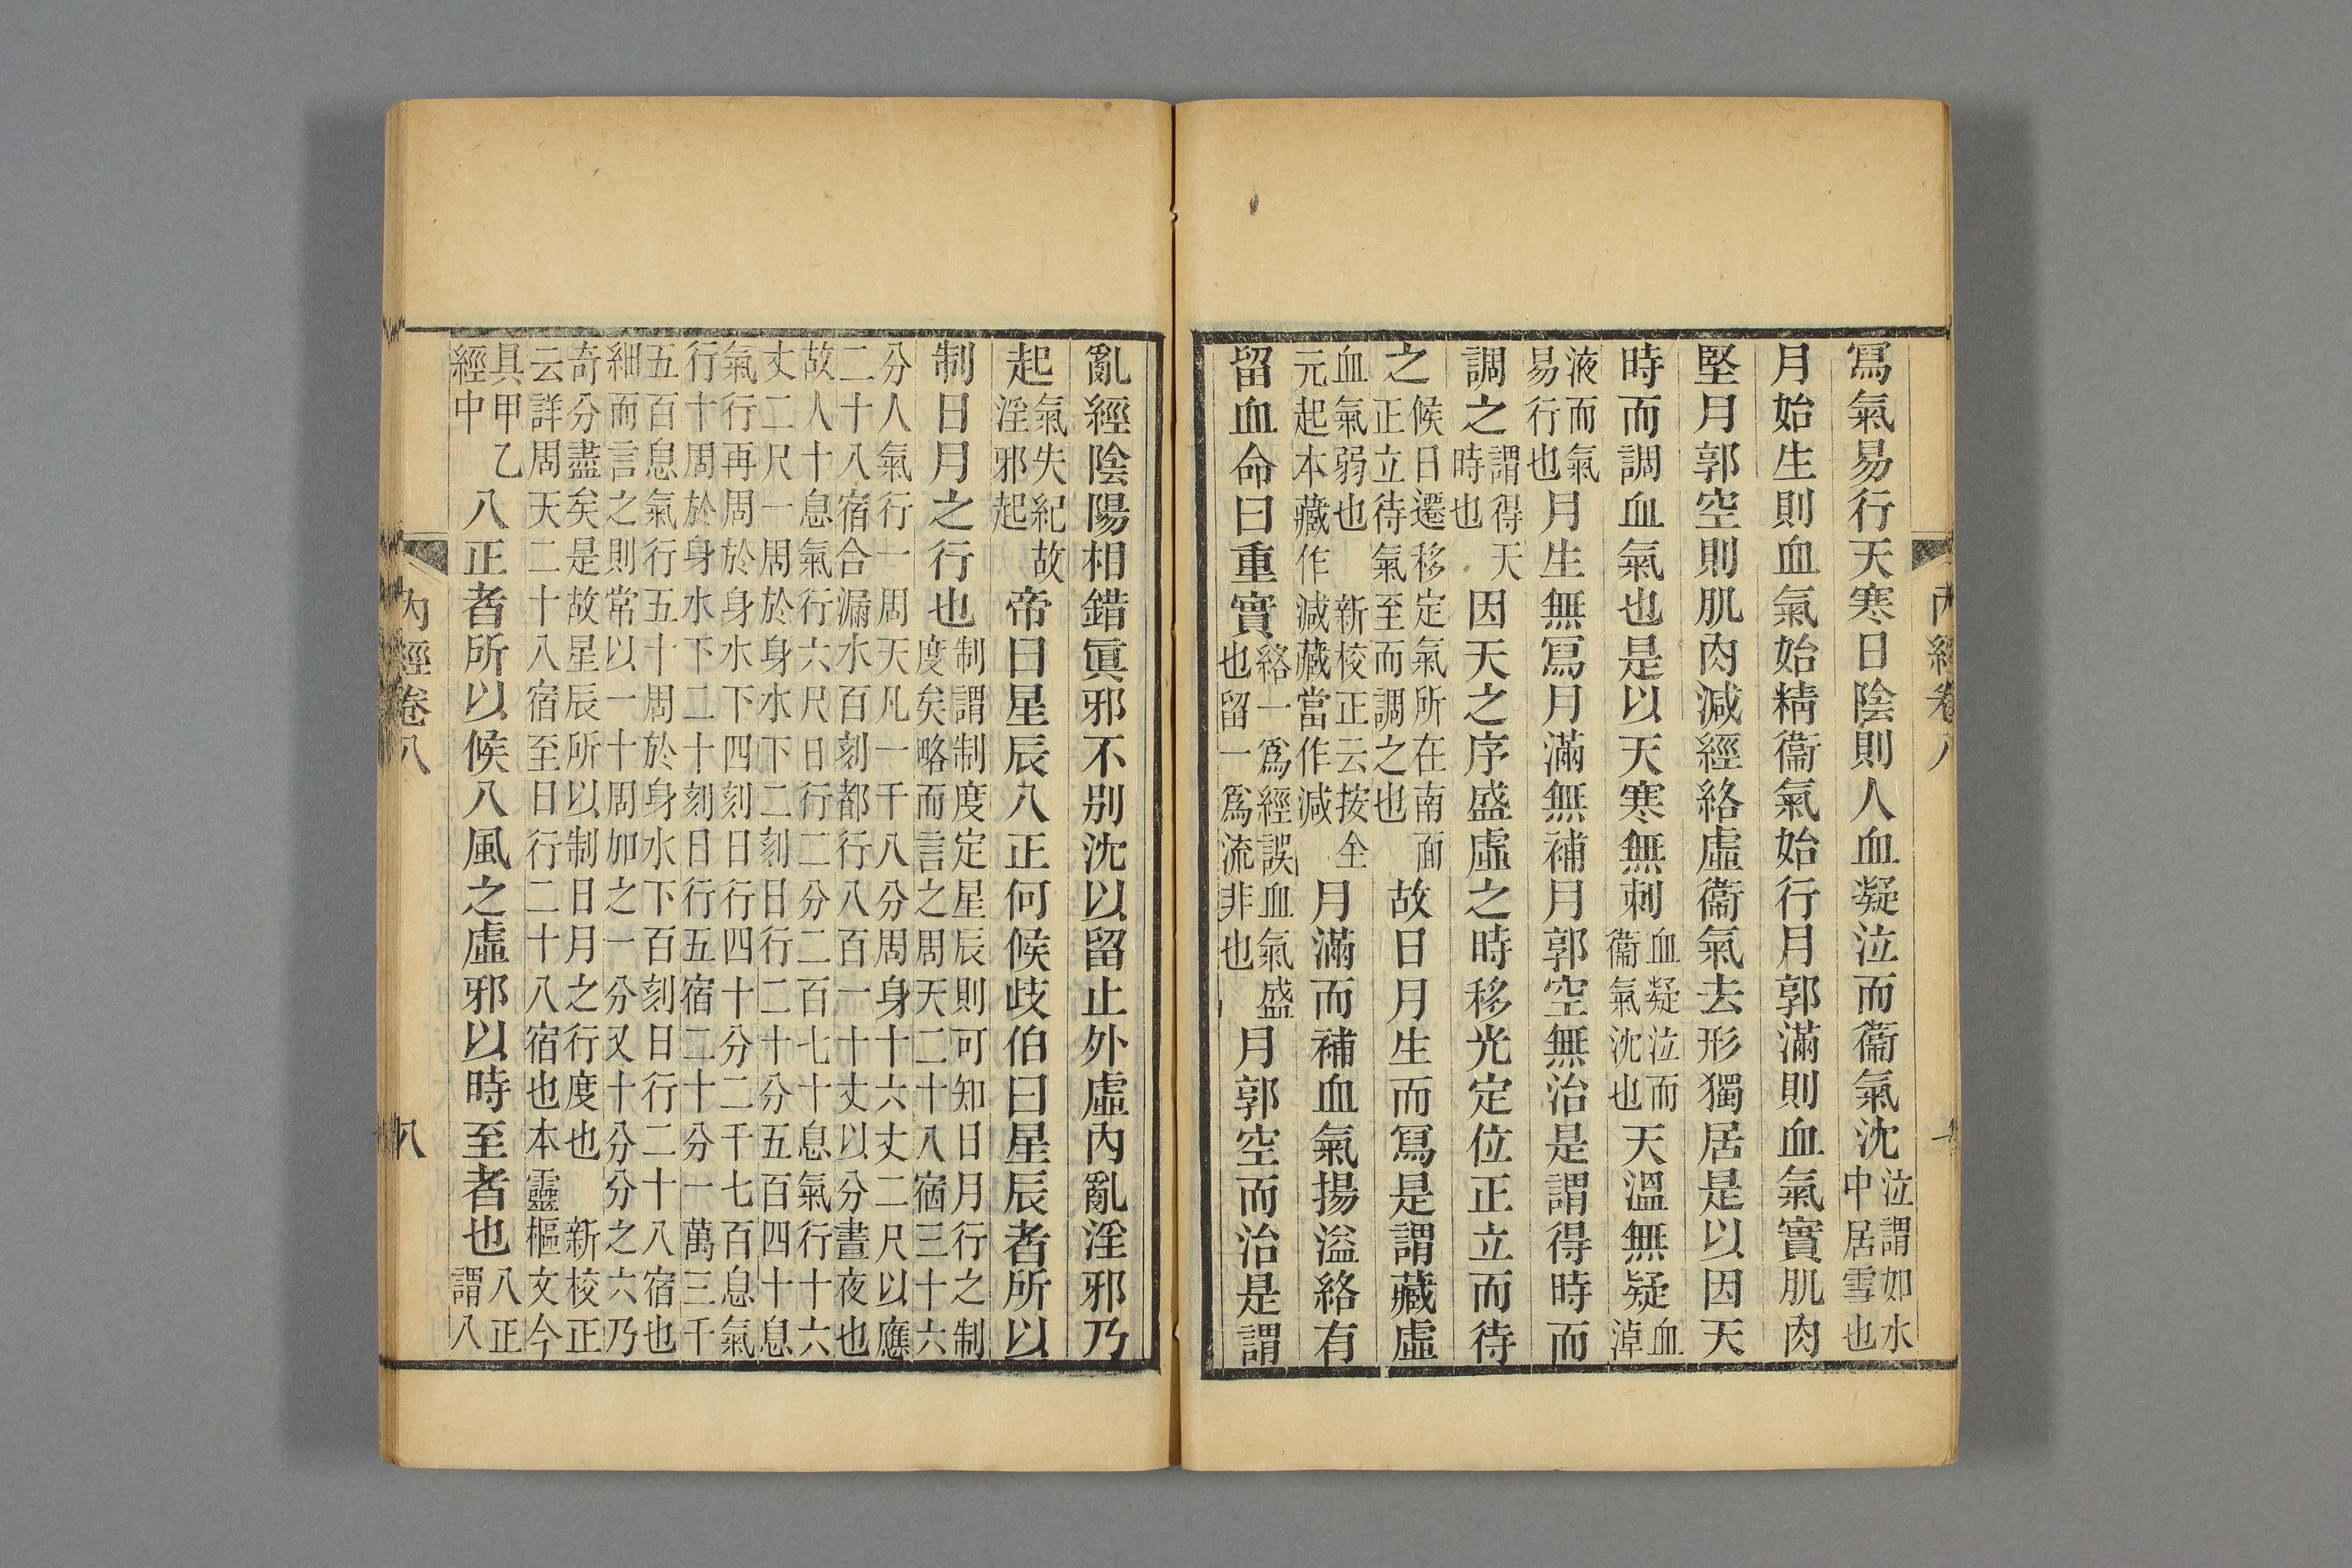 寫氣易行天寒日陰則人血凝泣而衞氣沈泣謂如水中居雪也
月始生則血氣始精衞氣始行月郭滿則血氣實肌肉
堅月郭空則肌肉減經絡虛衞氣去形獨居是以因天
時而調血氣也是以天寒無刺血凝泣而衞氣沈也天溫無疑血淖
液而氣易行也月生無寫月滿無補月郭空無治是謂得時而
調之謂得天時也因天之序盛虛之時移光定位正立而待
之候日遷移定氣所在南面正立待氣至而調之也故日月生而寫是謂藏虛
血氣弱也新校正云按全元起本藏作減藏當作減月滿而補血氣揚溢絡有
留血命曰重實絡一爲經誤血氣盛也留一爲流非也月郭空而治是謂
亂經陰陽相錯眞邪不別沈以留止外虛內亂淫邪乃
起氣失紀故淫邪起帝曰星辰八正何候歧伯曰星辰者所以
制日月之行也制謂制度定星辰則可知日月行之制度矣略而言之周天二十八宿三十六
分人氣行一周天凡一千八分周身十六丈二尺以應
二十八宿合漏水百刻都行八百一十丈以分晝夜也
故人十息氣行六尺日行二分二百七十息氣行十六
丈二尺一周於身水下二刻日行二十分五百四十息
氣行再周於身水下四刻日行四十分二千七百息氣
行十周於身水下二十刻日行五宿二十分一萬三千
五百息氣行五十周於身水下百刻日行二十八宿也
細而言之則常以一十周加之一分又十分分之六乃
奇分盡矣是故星辰所以制日月之行度也新校正
云詳周天二十八宿至日行二十八宿也本靈樞文今
具甲乙經中八正者所以候八風之虛邪以時至者也八正謂八
內經卷八 八